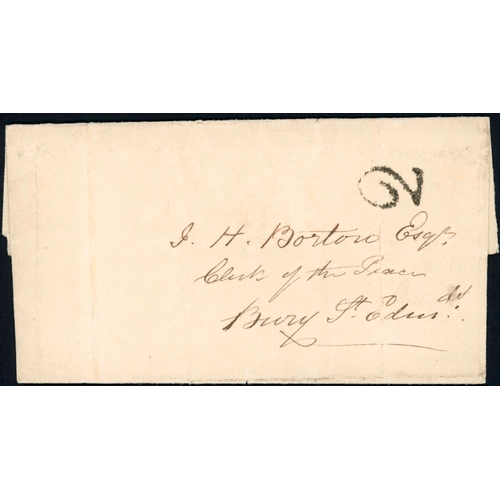 2
J. H. Borton Esqr.
Clerk of the Peace
Bury St. Edmds.